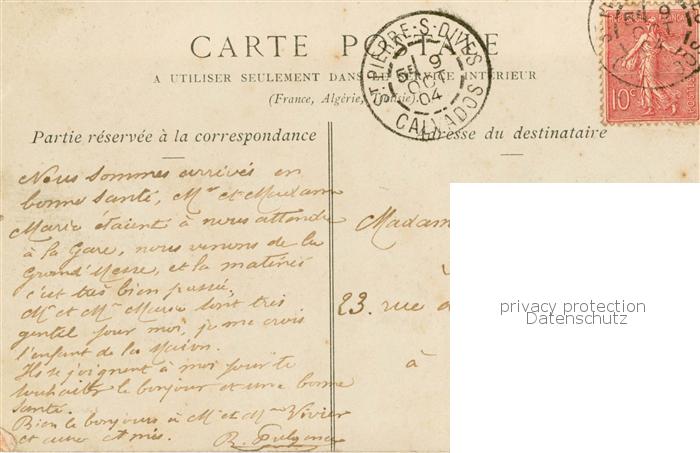 CARTE POSTALE
A UTILISER SEULEMENT DANS LE SERVICE INTÉRIEUR
(France, Algérie, Tunisie).
ST-PIERRE-S-DIVES
5E 9
OCT
04
CALVADOS
10c
Partie réservée à la correspondance
Adresse du destinataire
Nous sommes arrivés en
bonne santé, Mr et Madame
Marie étaient à nous attendre
à la Gare, nous venons de la
Grand'Messe, et la matinée
c'est très bien passée,
Mr et Me Marie sont très
gentil pour moi, je me crois
l'enfant de la Maison.
Ils se joignent à moi pour te
souhaiter le bonjour et une bonne
santé.
Bien le bonjours à Mr et Mme Vivier
et amis.
Madam
à
23. rue d
à
privacy protection
Datenschutz